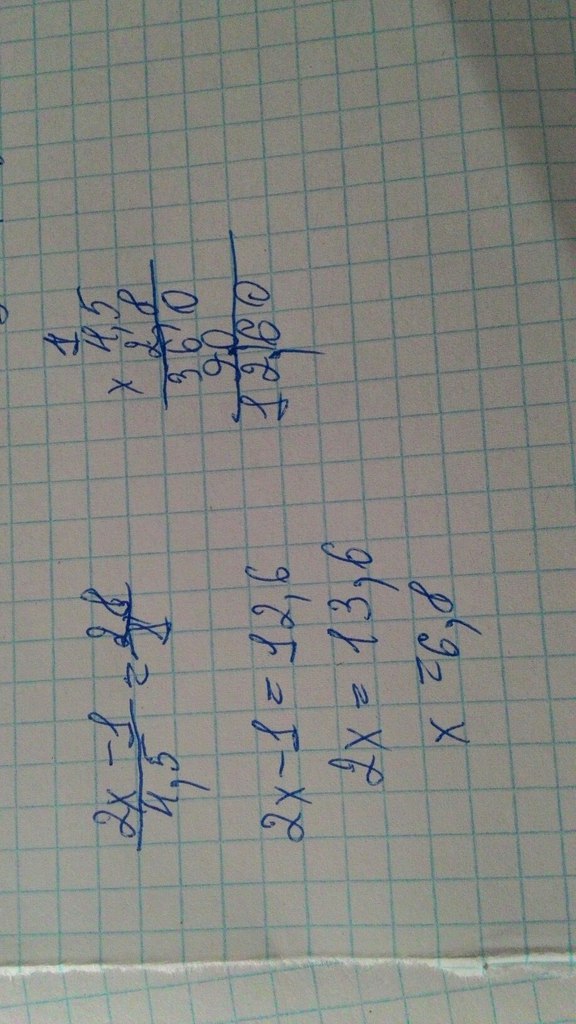 2x-1/4,5 = 2,8/1
2x-1 = 12,6
2x = 13,6
x = 6,8
1
4,5
x 2,8
36,0
90
12,60